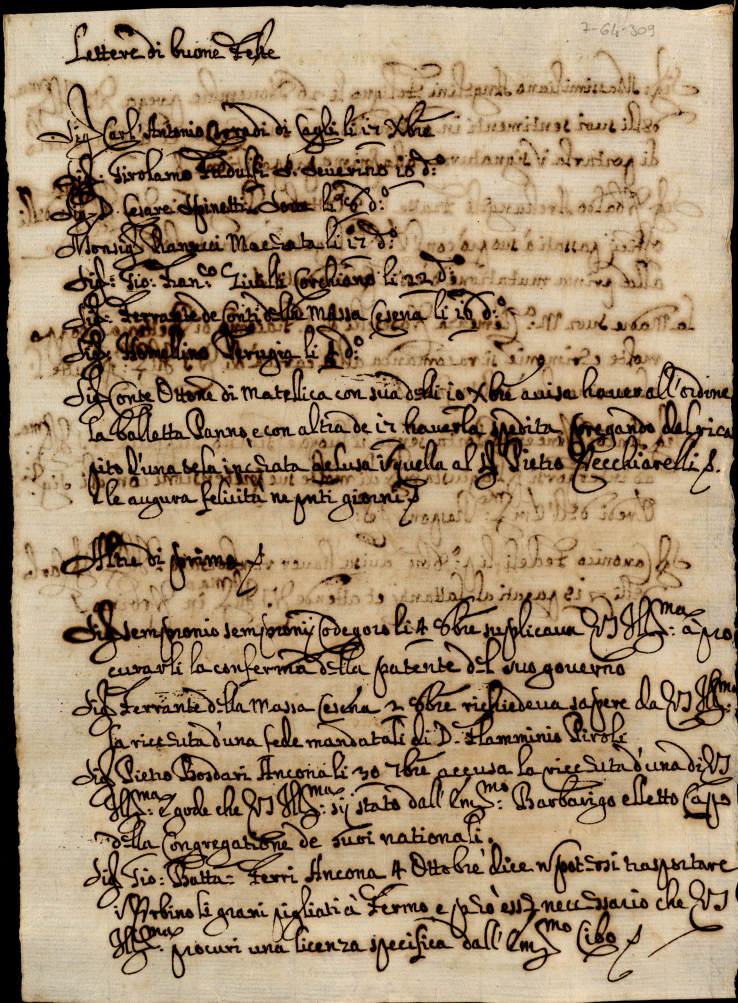 7-64-309
Lettere di buone Feste
Sig.r Carl'Antonio Corradi di Cagli li 12 Xbre
Sig.r Girolamo S. Severino 16 d.o
Sig.r D. Cesare Spinetti li 16 d.o
Monsig.r Ranucci Macerata li 17 d.o
Sig.r Gio: Fran.co Corchiano li 22 d.o
Sig.r Ferrante de Conti della Massa Cesena li 16 d.o
Sig.r Homellino Perugia li d.o
Sig.r Conte Ottone di Matelica con sua delli 10 Xbre avisa haver all'ordine
la balletta Panno, e con altra de 12 haverla spedita, pregando del rica
pito d'una tela incerata p quella al Sr Pietro Vecchiarelli
e le augura felicità ne pnti giorni
Altre di prima
Sig.r Sempronio Sempronij Codegoro li 4 8bre suplicava VS Ill.ma à pro
curarli la conferma della patente del suo governo
Sig.r Ferrante della Massa Cesena 2 8bre richiedeva sapere da VS Ill.ma
la riceduta d'una fede mandatali di D. Flamminio Piroli
Sig.r Pietro Bosdari Ancona li 30 7bre accusa la riceduta d'una di VS
Ill.ma e gode che VS Ill.ma sij stato dall'Em.mo Barbarigo elletto Capo
della Congregatione de suoi nationali.
Sig.r Gio: Batta: Ferri Ancona 4 Ottobre dice n potersi trasportare
i Urbino li grani pigliati à Fermo e però esser necessario che VS
Ill.ma procuri una licenza specifica dall'Em.mo Cibo